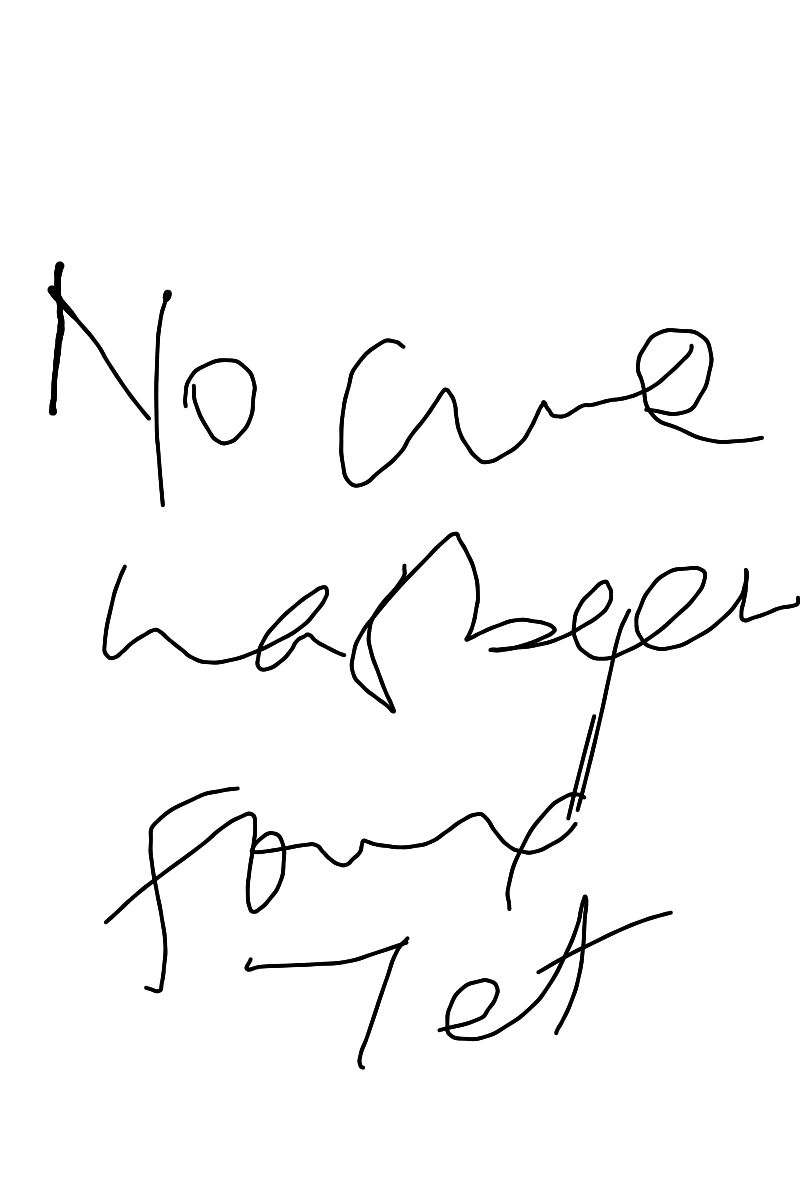 No cure
has been
found
yet